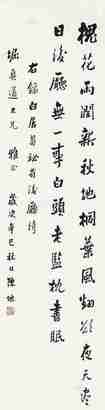 槐花雨潤新秋地桐葉風翻欲夜天盡
日後廳無一事白頭老監枕書眠
右錄白居易祕省後廳詩
堀真道大兄 雅正
歲次辛巳秋日陳